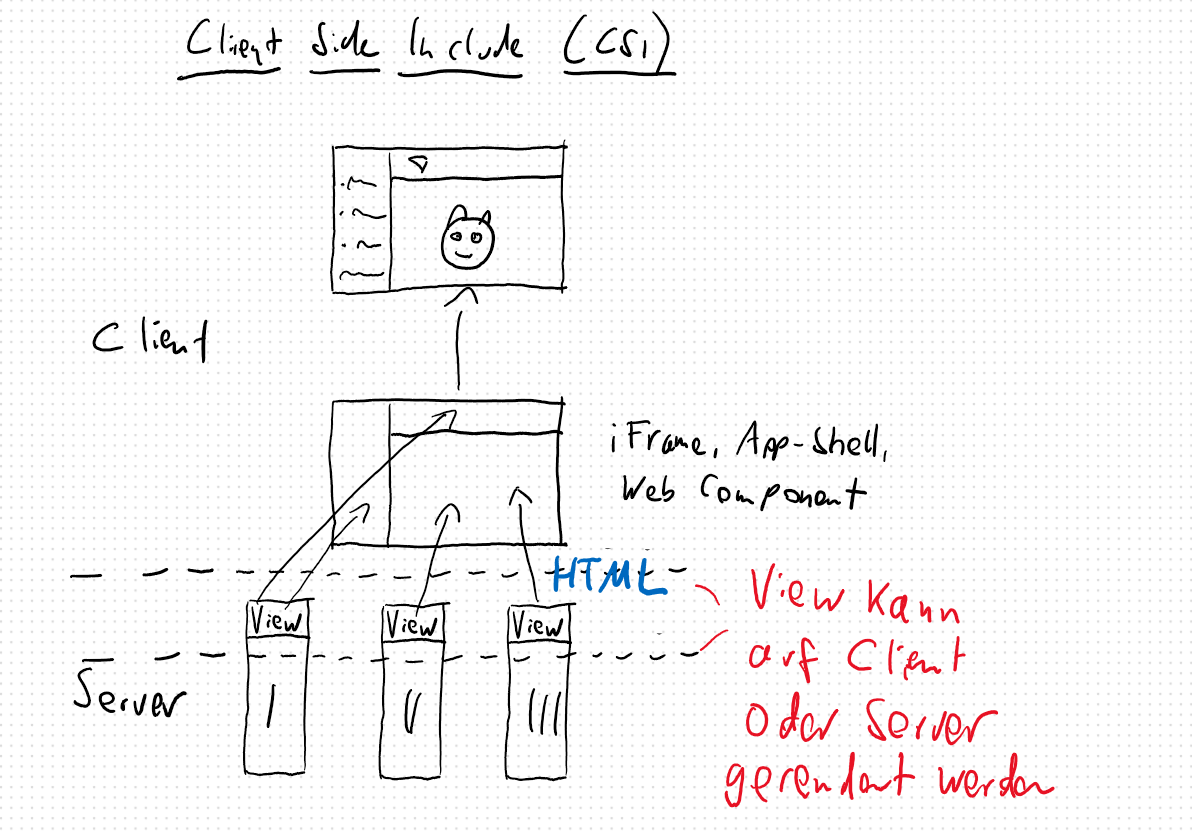 Client Side Include (CSI)
Client
iFrame, App-Shell,
Web Component
HTML
View
View
View
View kann
auf Client
oder Server
gerendert werden
Server
I
II
III